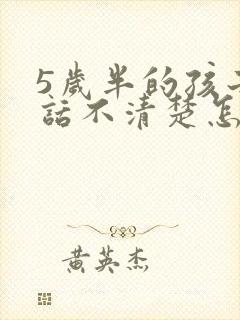 5歲半的孩
話不清楚怎
黄英杰